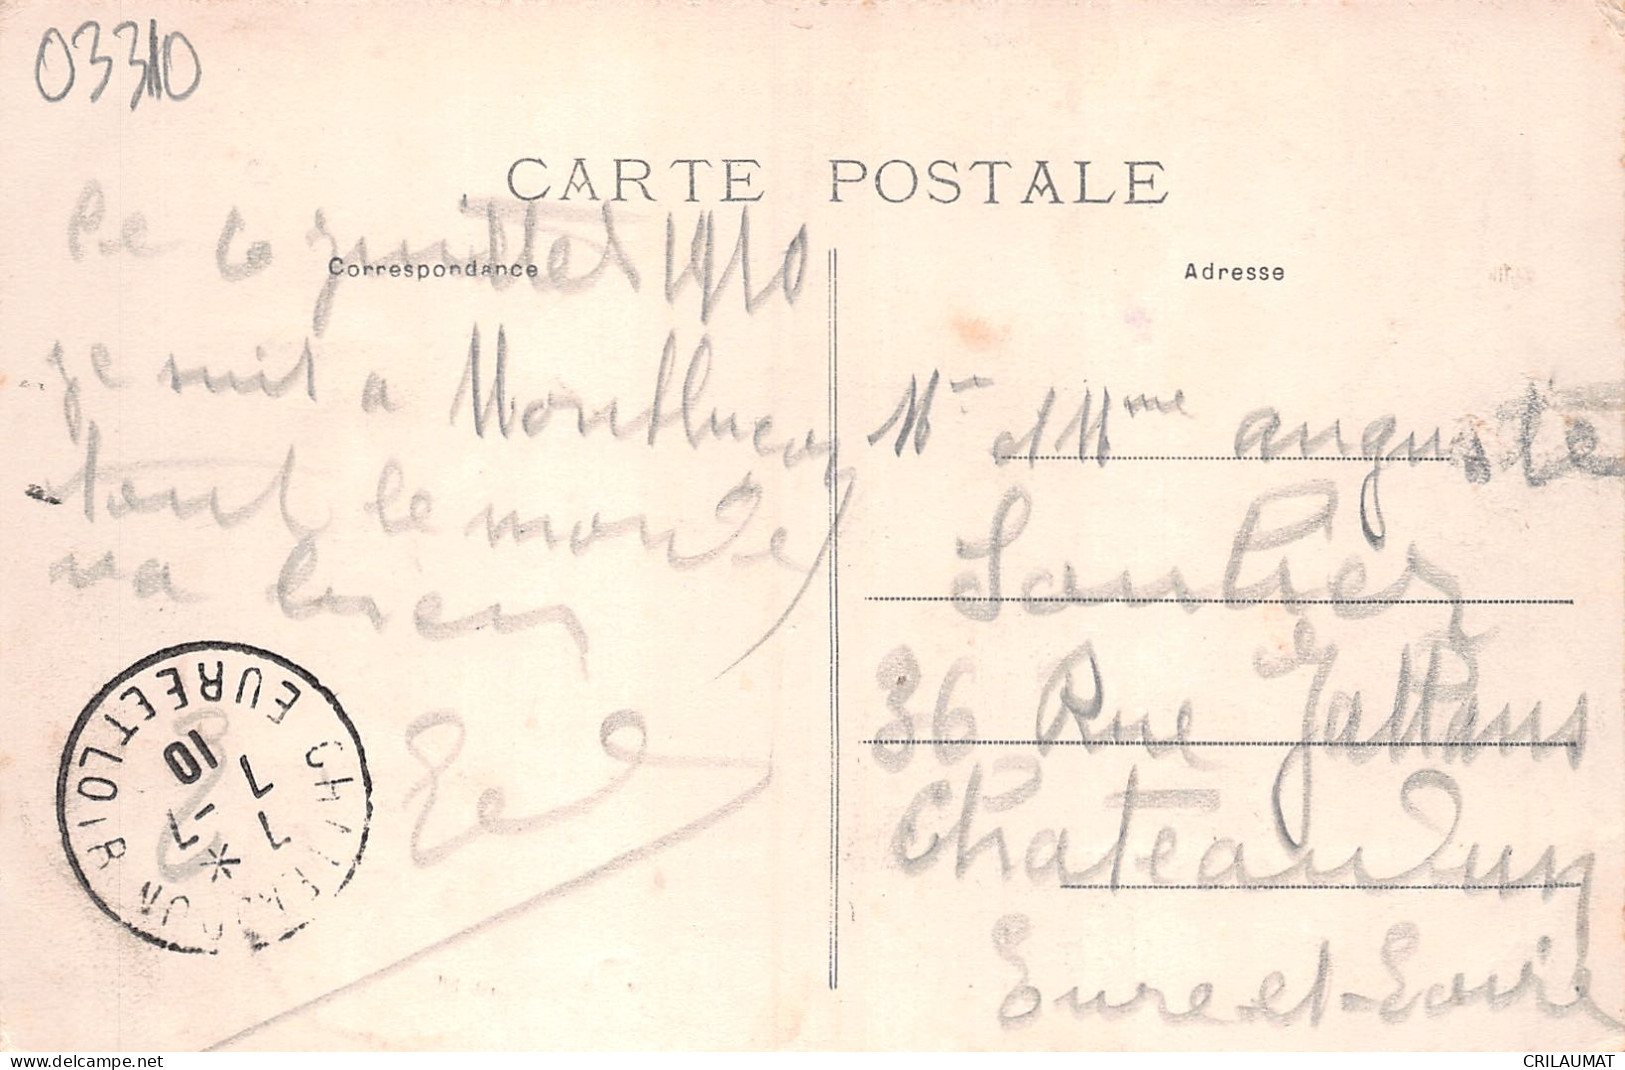 03310
CARTE POSTALE
Correspondance
Adresse
Le 6 Juillet 1910
Je suit a Montlucon
tout le monde
va bien
Mr et Mme auguste
36 Rue Jallans
Chateaudun
Eure-et-Loire
CHATEAUDUN
EURE ET LOIR
7
7 -7
10
CRILAUMAT